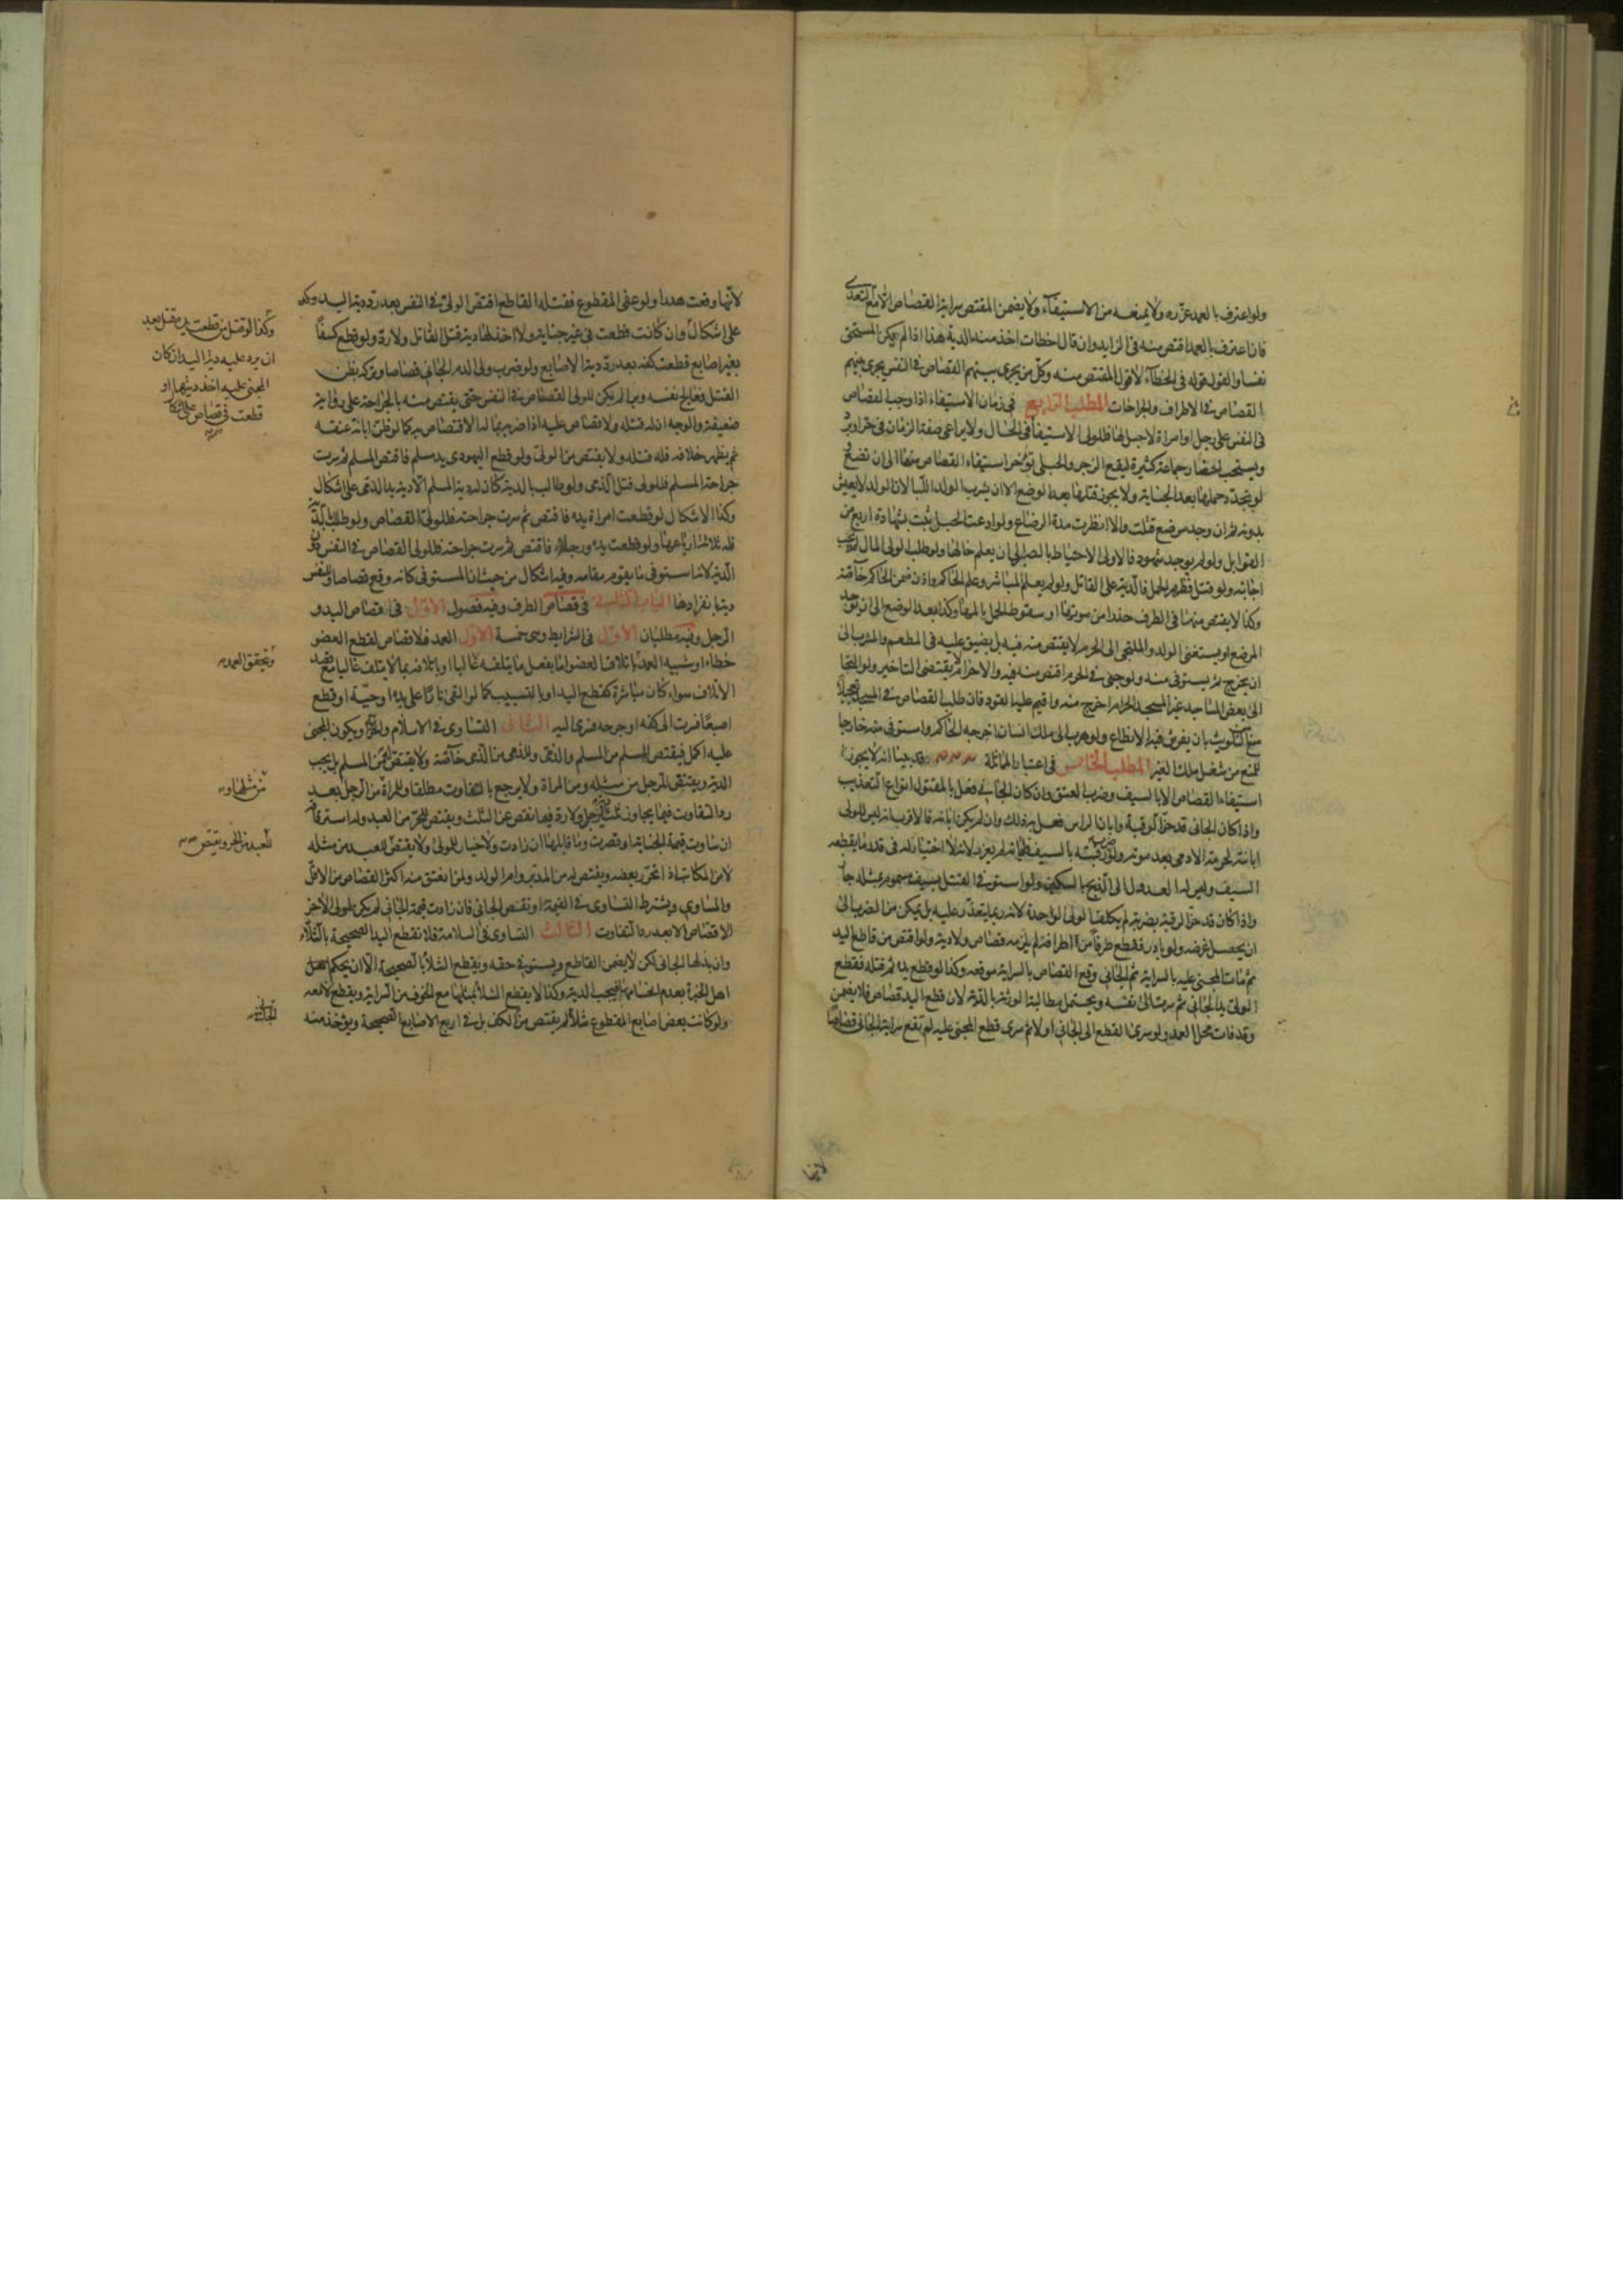 ولو اعترف بالعمد عزّره ولا يمنعه من الاستيفاء ولا يضمن المقتص سراية القصاص الا مع التعدى
فان اعترف بالعمد اقتص منه فى الزايد وان قال اخطات اخذ منه الدية هذا اذا لم يكن المستحق
نفسا والقول قوله فى الخطاء لا قول المقتص منه وكل من يجرى بينهم القصاص فى النفس يجرى بينهم
القصاص فى الاطراف والجراحات المطلب الرابع فى زمان الاستيفاء اذا وجب القصاص
فى النفس على رجل او امراة لا حبل لها فللولى الاستيفا فى الحال ولا يراعى صفة الزمان فى حر او برد
ويستحب احضار جماعة كثيرة ليقع الزجر والحبلى تؤخر استيفاء القصاص منها الى ان تضع
لو تجدد حملها بعد الجناية ولا يجوز قتلها بعد الوضع الا ان يشرب الولد اللبا لان الولد لا يعيش
بدونه ثم ان وجد مرضع قتلت والا انظرت مدة الرضاع ولو ادعت الحبل ثبت بشهادة اربع من
القوابل ولو لم يوجد شهود فالاولى الاحتياط بالصبر الى ان يعلم حالها ولو طلب الولى المال لم يجب
اجابته ولو قتل فظهر الحمل فالدية على القاتل ولو لم يعلم المباشر وعلم الحاكم واذن ضمن الحاكم خاصة
وكذا لا يقتص منها فى الطرف حذرا من موتها او سقوط الحمل بالمها وكذا بعد الوضع الى ان يوجد
المرضع او يستغنى الولد والملتجى الى الحرم لا يقتص منه فيه بل يضيق عليه فى المطعم والمشرب الى
ان يخرج ثم يستوفى منه ولو جنى فى الحرم اقتص منه فيه والاحرام لا يقتضى التاخير ولو التجا
الى بعض المساجد غير المسجد الحرام اخرج منه واقيم عليه القود فان طلب القصاص فى المسجد تعجيلا
منع كتلويث بان يفرش فيه الانطاع ولو هرب الى ملك انسان اخرجه الحاكم واستوفى منه خارجا
للمنع من شغل ملك الغير المطلب الخامس فى اعتبار المماثلة قد بينا انه لا يجوز
استيفاء القصاص الا بالسيف وضرب العنق وان كان الجانى فعل بالمقتول انواع التعذيب
واذا كان الجانى قد حز الرقبة وابان الراس فعل به ذلك وان لم يكن ابانه فالاقرب انه ليس للولى
ابانته لحرمة الادمى بعد موته ولو ضرب رقبته بالسيف فابانه لم يعزر لانه لا اختيار له فى قدر ما يقطعه
السيف وليس له العدول الى الذبح بالسكين ولو استوفى القتل بسيف مسموم مثله جاز
واذا كان قد حز الرقبة بضربة لم يكلف الولى الواحدة لانه ربما يتعذر عليه بل يمكن من الضرب الى
ان يحصل غرضه ولو بادر فقطع طرفا من اطرافه لم يلزمه قصاص ولا دية ولو اقتص من قاطع اليد
ثم مات المجنى عليه بالسراية ثم الجانى وقع القصاص بالسراية موقعه وكذا لو قطع يده ثم قتله فقطع
الولى يد الجانى ثم سرت الى نفسه ويحتمل مطالبة الورثة بالدية لان قطع اليد قصاص فلا يضمن
وقد فات محل العمد ولو سرى القطع الى الجانى اولا ثم سرى قطع المجنى عليه لم تقع سراية الجانى قصاصا
لانها
لانها وقعت هدرا ولو عفى المقطوع فقتله القاطع اقتص الولى فى النفس بعد رد دية اليد وكذ
على اشكال وان كانت قطعت فى غير جناية ولا اخذ لها دية قتل القاتل ولا رد ولو قطع كفا
بغير اصابع قطعت كفه بعد رد دية الاصابع ولو ضرب ولى الدم الجانى قصاصا وتركه بظن
القتل فعالج نفسه وبرا لم يكن للولى القصاص فى النفس حتى يقتص منه بالجراحة على رواية
ضعيفة والوجه ان له قتله ولا قصاص عليه اذا ضربه بما له الاقتصاص به كما لو ظن ابانة عنقه
ثم يظهر خلافه فله قتله ولا يقتص من الولى ولو قطع اليهودى يد مسلم فاقتص المسلم ثم سرت
جراحة المسلم فللولى قتل الذمى ولو طالب بالدية كان له دية المسلم الا دية يد الذمى على اشكال
وكذا الاشكال لو قطعت امراة يده فاقتص ثم سرت جراحته فللولى القصاص ولو طلب الدية
فله ثلاثة ارباعها ولو قطعت يده ورجله فاقتص ثم سرت جراحته فللولى القصاص فى النفس دون
الدية لانه استوفى ما يقوم مقامه وفيه اشكال من حيث ان المستوفى كانه وقع قصاصا وللنفس
دية بانفرادها الباب الثانى فى قصاص الطرف وفيه فصول الاول فى قصاص اليد و
الرجل وفيه مطلبان الاول فى الشرايط وهى خمسة الاول العمد فلا قصاص لقطع العضو
خطاء او شبيه العمد باتلاف العضو اما بفعل ما يتلفه غالبا او باتلافه بما لا يتلف غالبا مع قصد
الاتلاف سواء كان مباشرة كقطع اليد او بالتسبيب كما لو القى نارا على يده او حية او قطع
اصبعا فسرت الى كفه او جرحه فسرى اليه الثانى التساوى فى الاسلام والحرية او يكون المجنى
عليه اكمل فيقتص للمسلم من المسلم والذمى وللذمى من الذمى خاصة ولا يقتص له من المسلم بل يجب
الدية ويقتص للرجل من مثله ومن المراة ولا يرجع بالتفاوت مطلقا وللمراة من الرجل بعد
رد التفاوت فيما يجاوز ثلث دية الرجل ولا رد فيما نقص عن الثلث ويقتص للحر من العبد وله استرقاقه
ان ساوت قيمته الجناية او قصرت وما قابلها ان زادت ولا خيار للمولى ولا يقتص للعبد من مثله
لا من المكاتب اذا تحرر بعضه ويقتص له من المدبر وام الولد ولمن انعتق منه اكثر القصاص من الاقل
والمساوى ويشترط التساوى فى القيمة او نقص الجانى فان زادت قيمة الجانى لم يكن لمولى الاخر
الاقتصاص الا بعد رد التفاوت الثالث التساوى فى السلامة فلا تقطع اليد الصحيحة بالشلاء
وان بذلها الجانى لكن لا يضمن القاطع ويستوفى حقه ويقطع الشلاء بالصحيحة الا ان يحكم اهل
اهل الخبرة بعدم انحسامها فيجب الدية وكذا لا يقطع الشلاء بمثلها مع الخوف من السراية ويقطع لا معه
ولو كانت بعض اصابع المقطوع شلاء لم يقتص من الكف بل فى اربع الاصابع الصحيحة ويؤخذ منه
وكذا لو قتل من قطعت يده مقتل بعد
ان يرد عليه دية اليد ان كان
المجنى عليه اخذ ديتها او
قطعت فى قصاص على اشكال
ويتحقق العمد
من مثلها و
للعبد من الحر ويقتص